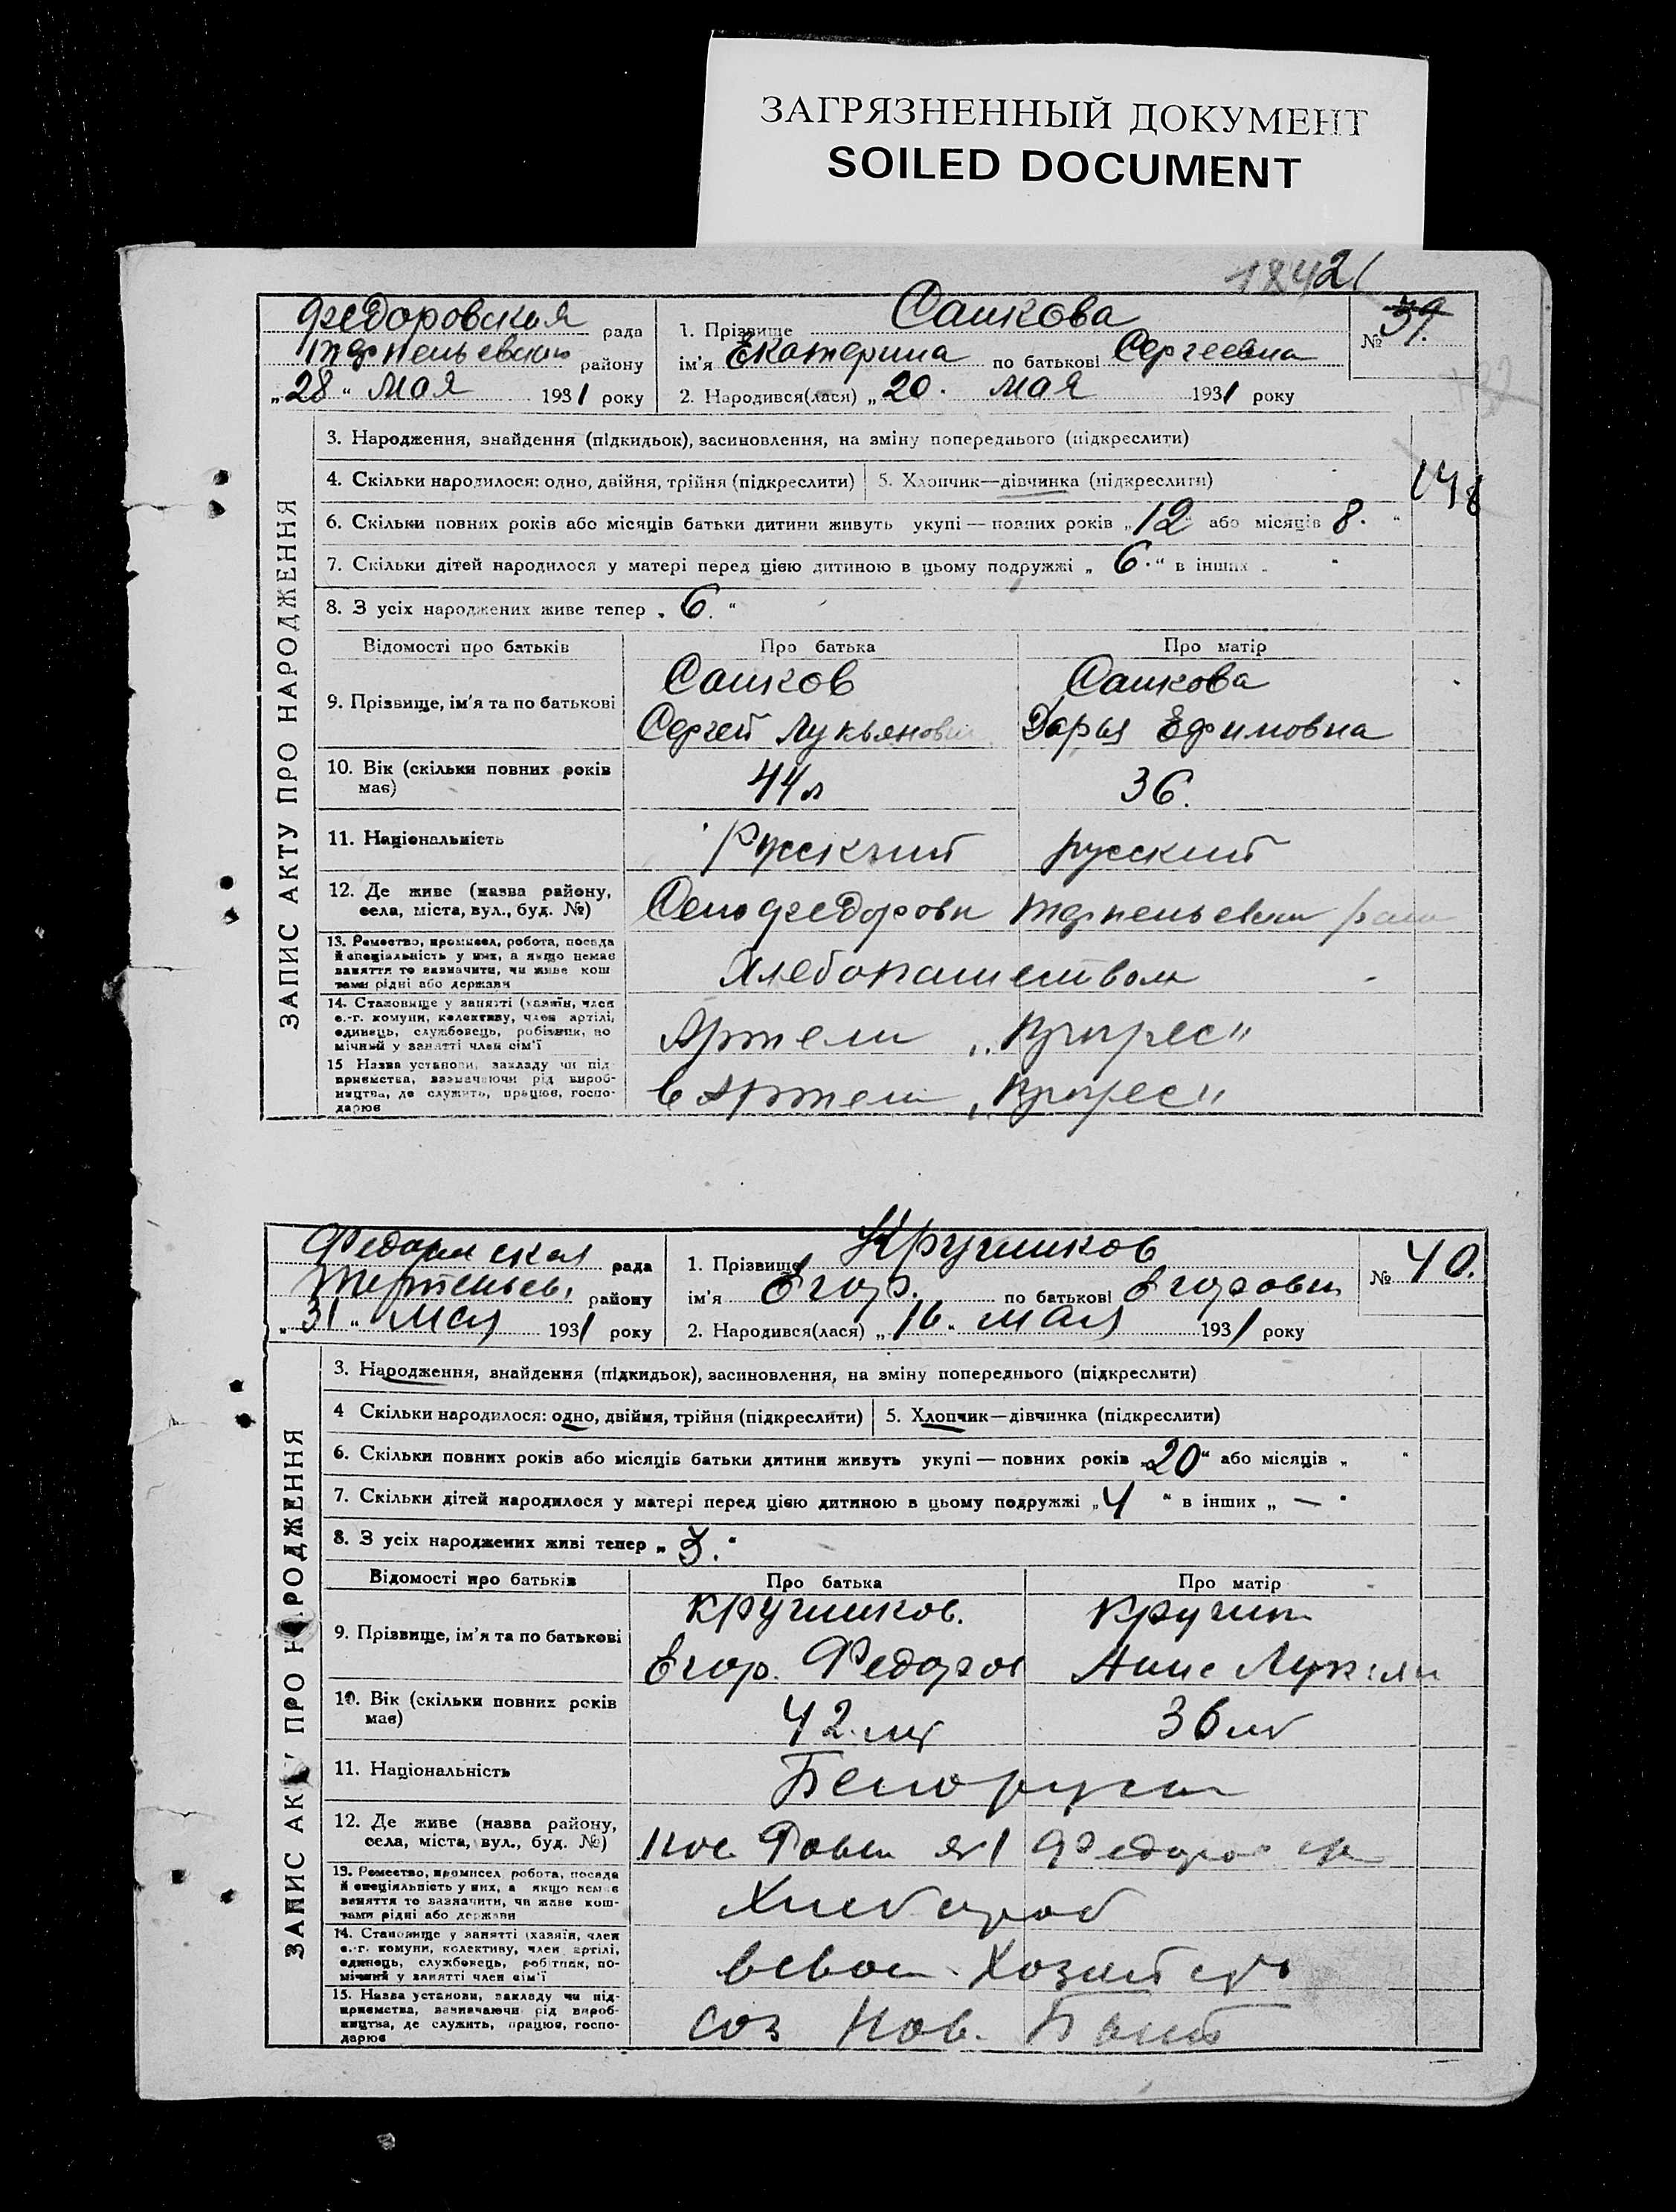 ЗАГРЯЗНЕННЫЙ ДОКУМЕНТ
SOILED DOCUMENT
18421
Федоровская рада
Терпеньевский району
„28“ мая 1931 року
1. Прізвище Сашкова
ім'я Екатерина по батькові Сергеевна
2. Народився(лася) „20. мая 1931 року
№ 39.
ЗАПИС АКТУ ПРО НАРОДЖЕННЯ
3. Народження, знайдення (підкидьок), засиновлення, на зміну попереднього (підкреслити)
4. Скільки народилося: одно, двійня, трійня (підкреслити) 5. Хлопчик—дівчинка (підкреслити)
148
6. Скільки повних років або місяців батьки дитини живуть укупі — повних років „12“ або місяців 8. “
7. Скільки дітей народилося у матері перед цією дитиною в цьому подружжі „ 6. “ в інших „ “
8. З усіх народжених живе тепер „ 6. “
Відомості про батьків Про батька Про матір
9. Прізвище, ім'я та по батькові
Сашков Сашкова
Сергей Лукьянович Дарья Ефимовна
10. Вік (скільки повних років має) 44 л 36.
11. Національність Русский русский
12. Де живе (назва району, села, міста, вул., буд. №)
13. Ремество, промисел, робота, посада й спеціальність у них, а якщо немає заняття то зазначити, чи живе коштами рідні або держави Хлебопашеством
14. Становище у занятті (хазяїн, член с.-г. комуни, колективу, член артілі, одинець, службовець, робітник, помічний у занятті член сім'ї Артели „Прогрес“
15 Назва установи, закладу чи підприємства, зазначаючи рід виробництва, де служить, працює, господарює в Артели „Прогрес“
рада
району
„31“ мая 1931 року
1. Прізвище Кручинков
ім'я Егор. по батькові Егорович
2. Народився(лася) „16“ мая 1931 року
№ 40.
ЗАПИС АКТУ ПРО НАРОДЖЕННЯ
3. Народження, знайдення (підкидьок), засиновлення, на зміну попереднього (підкреслити)
4 Скільки народилося: одно, двійня, трійня (підкреслити) 5. Хлопчик—дівчинка (підкреслити)
6. Скільки повних років або місяців батьки дитини живуть укупі — повних років „20“ або місяців „ “
7. Скільки дітей народилося у матері перед цією дитиною в цьому подружжі „4 “ в інших „ — “
8. З усіх народжених живі тепер „ 3. “
Відомості про батьків Про батька Про матір
9. Прізвище, ім'я та по батькові
Кручинков.
Егор. Федоров
10. Вік (скільки повних років має) 42 36
11. Національність
12. Де живе (назва району, села, міста, вул., буд. №)
13. Ремество, промисел, робота, посада й спеціяльність у них, а якщо немає заняття то зазначити, чи живе коштами рідні або держави Хлебороб
14. Становище у занятті (хазяїн, член с.-г. комуни, колективу, член артілі, одинець, службовець, робітник, помічний у занятті член сім'ї
15. Назва установи, закладу чи підприємства, зазначаючи рід виробництва, де служить, працює, господарює